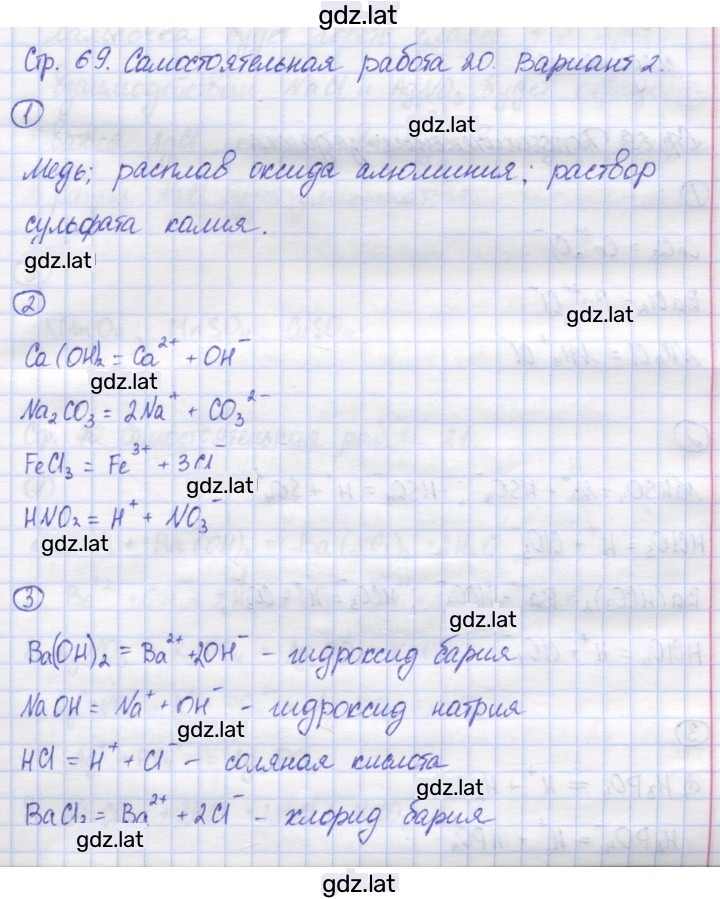 gdz.lat
Стр. 69. Самостоятельная работа 20. Вариант 2.
1
gdz.lat
Медь; расплав оксида алюминия; раствор
сульфата калия.
gdz.lat
2
gdz.lat
Ca(OH)₂ = Ca²⁺ + OH⁻
gdz.lat
Na₂CO₃ = 2Na⁺ + CO₃²⁻
FeCl₃ = Fe³⁺ + 3Cl⁻
gdz.lat
HNO₂ = H⁺ + NO₃⁻
gdz.lat
3
gdz.lat
Ba(OH)₂ = Ba²⁺ + 2OH⁻ - гидроксид бария
NaOH = Na⁺ + OH⁻ - гидроксид натрия
gdz.lat
HCl = H⁺ + Cl⁻ - соляная кислота
gdz.lat
BaCl₂ = Ba²⁺ + 2Cl⁻ - хлорид бария
gdz.lat
gdz.lat